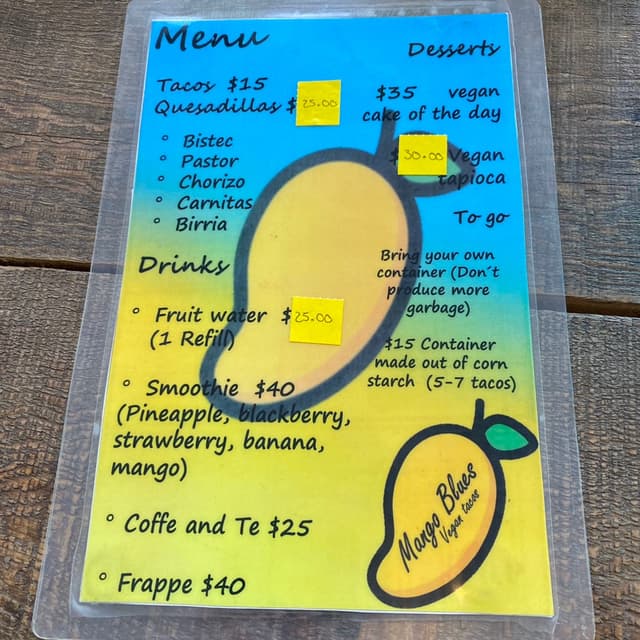 Menu
Tacos $15
Quesadillas $25.00
° Bistec
° Pastor
° Chorizo
° Carnitas
° Birria
Drinks
° Fruit water $25.00
(1 Refill)
° Smoothie $40
(Pineapple, blackberry,
strawberry, banana,
mango)
° Coffe and Te $25
° Frappe $40
Desserts
$35 vegan
cake of the day
$30.00 Vegan
tapioca
To go
Bring your own
container (Don´t
produce more
garbage)
$15 Container
made out of corn
starch (5-7 tacos)
Mango Blues
Vegan tacos